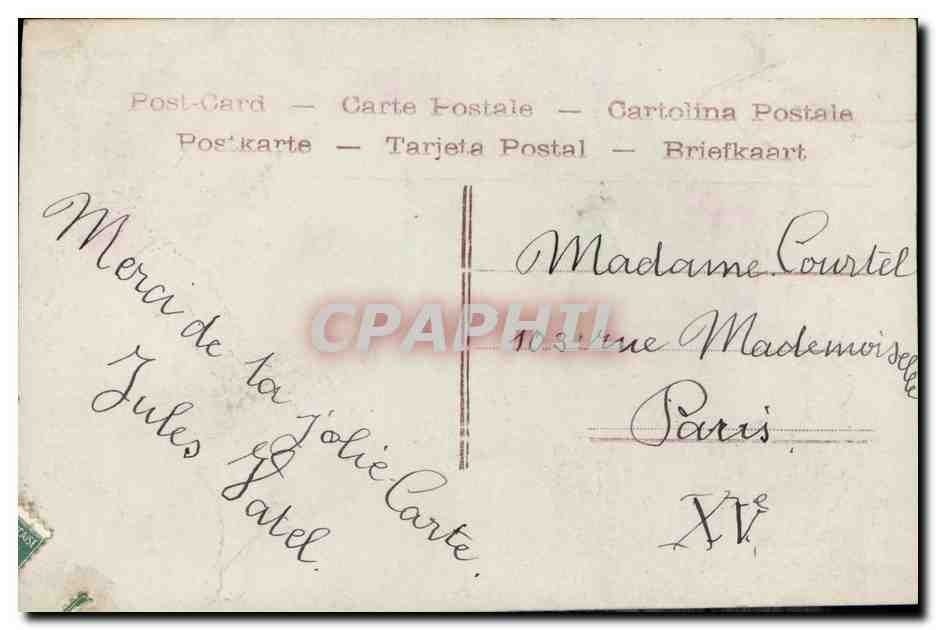 Post-Card — Carte Postale — Cartolina Postale
Postkarte — Tarjeta Postal — Briefkaart
Merci de ta jolie Carte.
Jules Hatel.
Madame Courtel
103 rue Mademoiselle
Paris
XVe
CPAPHIL